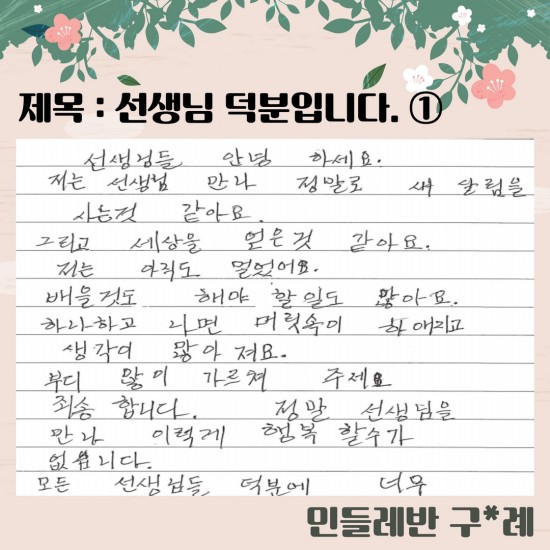 제목 : 선생님 덕분입니다. ①
선생님들 안녕 하세요.
저는 선생님 만나 정말로 새 삶림을
사는것 같아요.
그리고 세상을 얻은것 같아요.
저는 아직도 멀었어요.
배울것도 해야 할일도 많아요.
하나하고 나면 머릿속이 하얘지고
생각이 많아 져요.
부디 많이 가르쳐 주세요
죄송 합니다. 정말 선생님을
만나 이럭게 행복 할수가
없습니다.
모든 선생님들 덕분에 너무
민들레반 구*례